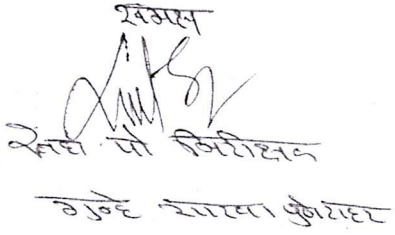 समक्ष
सहा पो निरीक्षक
गुन्हे शाखा पुणे शहर